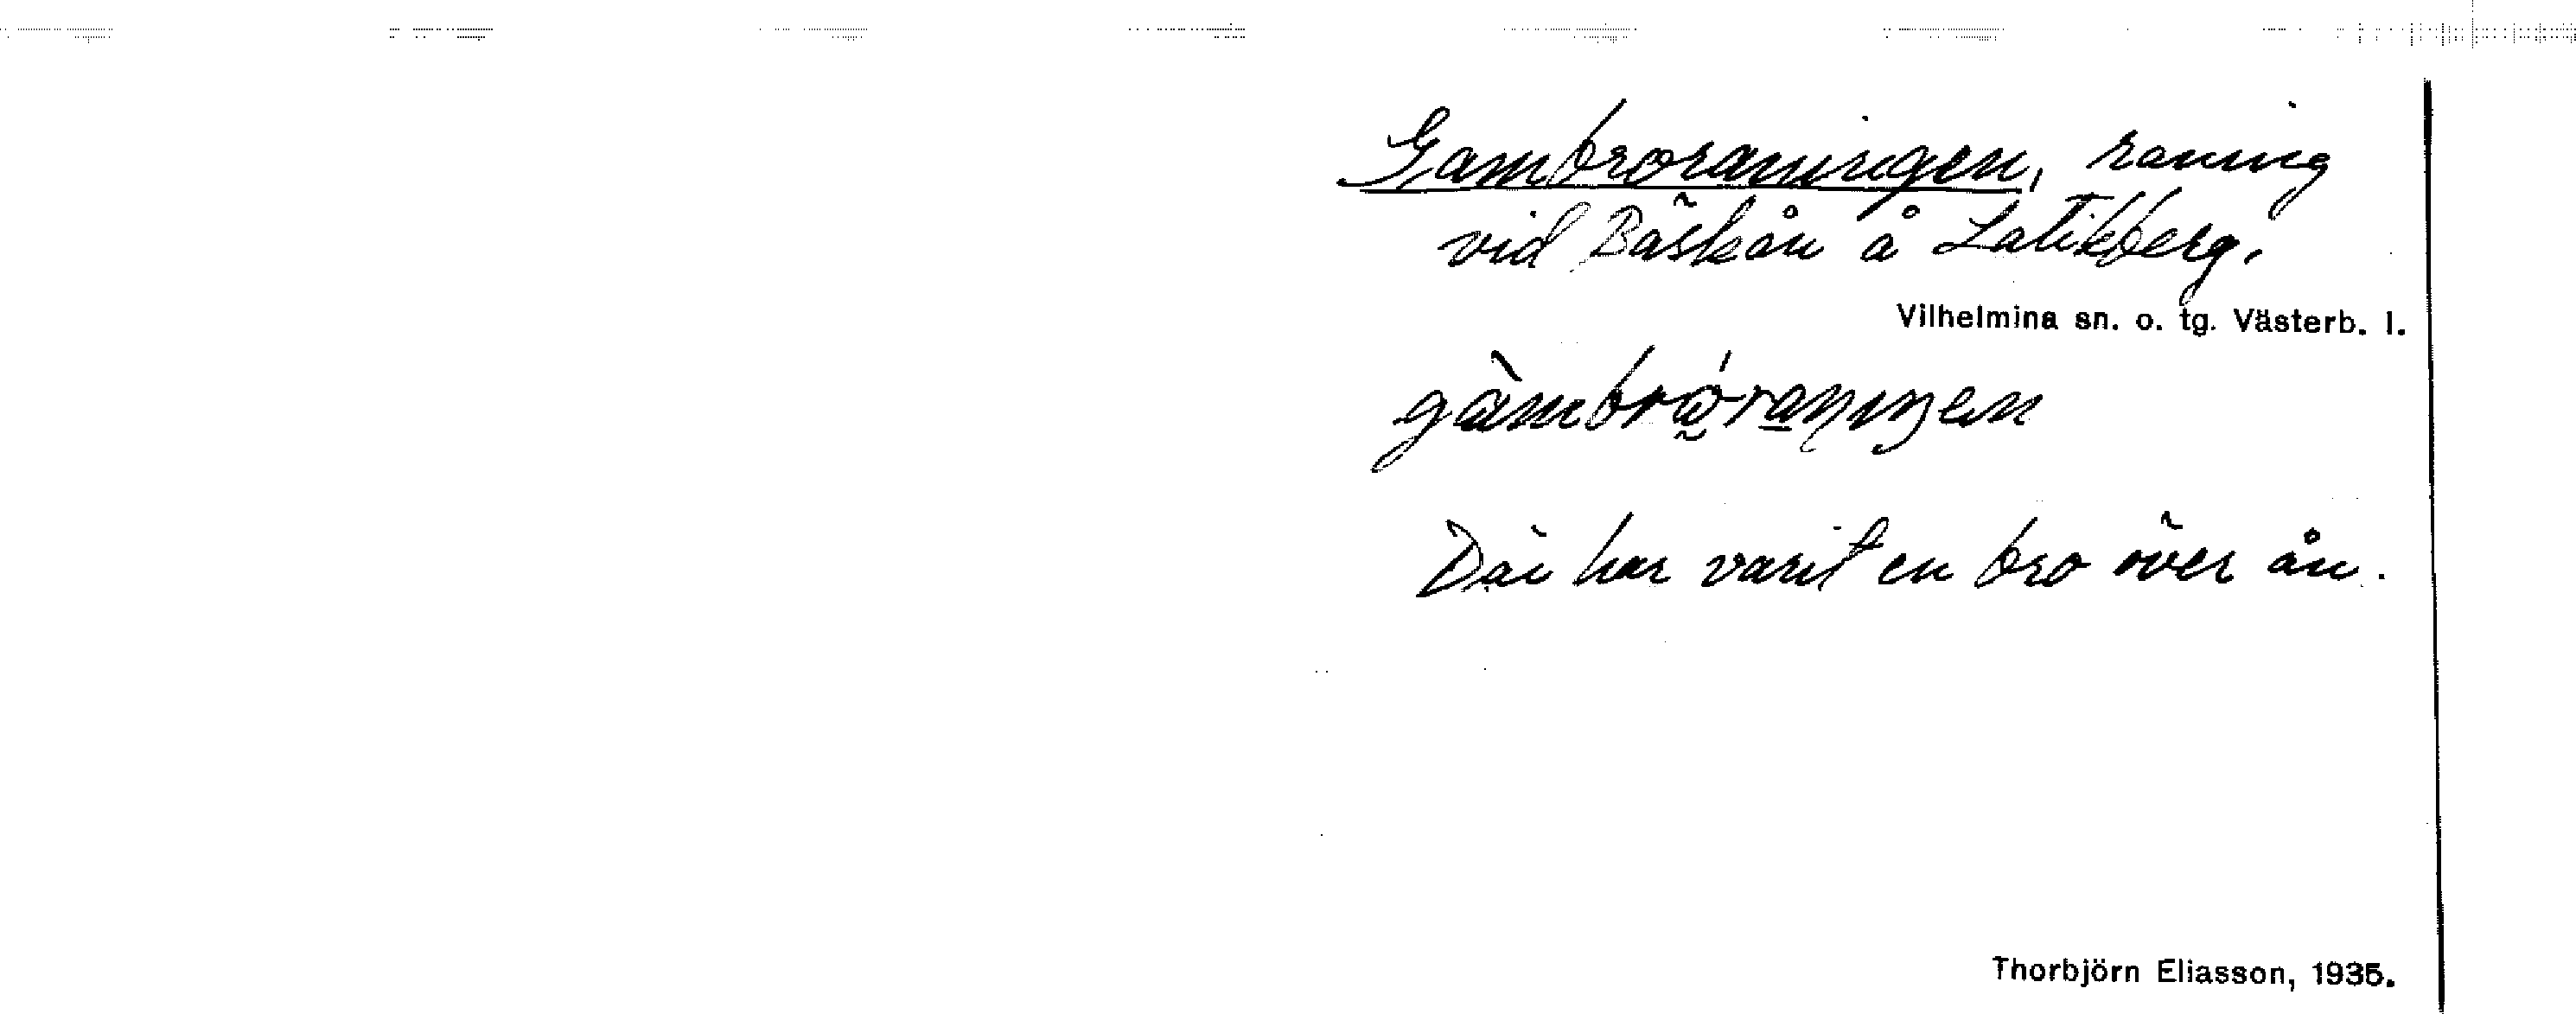 Gambroraningen, raning
vid Bäskån å Latikberg.
Vilhelmina sn. o. tg. Västerb. l.
Där har varit en bro över ån.
Thorbjörn Eliasson, 1935.